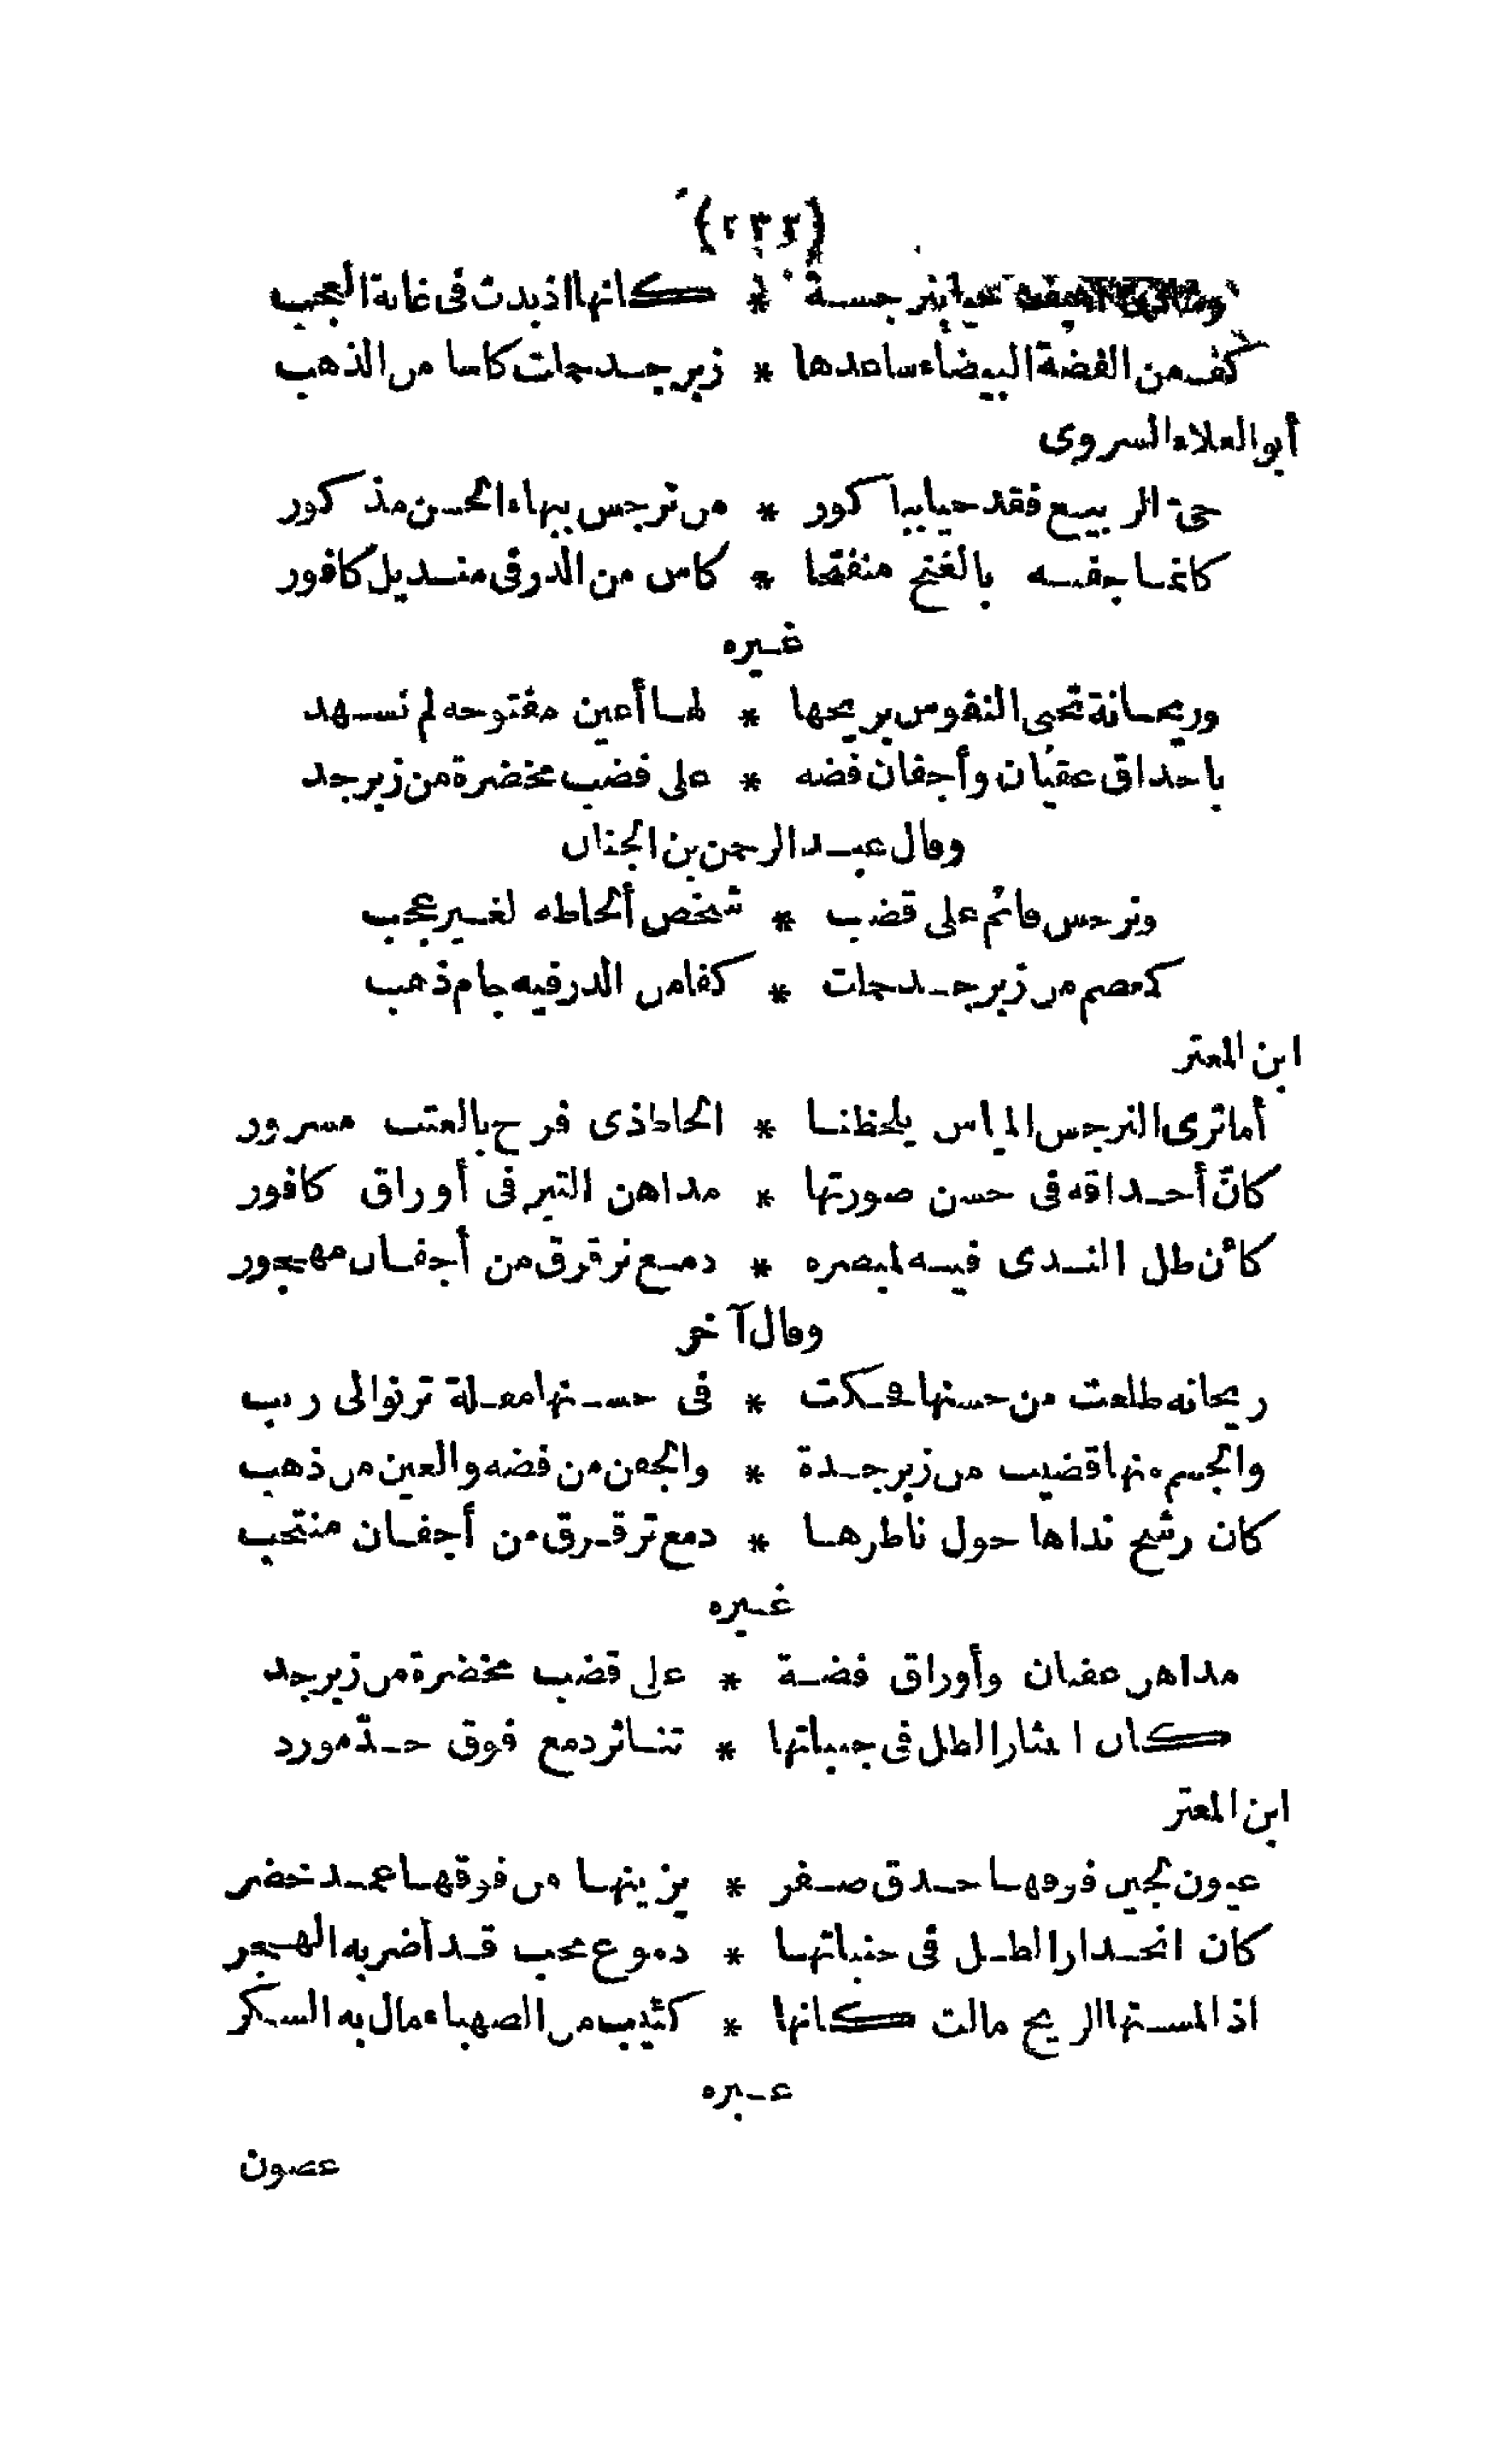 (٢٣٢)
بنرجسة * كانها اذ بدت فى غاية العجب
كف من الفضة البيضاء ساعدها * زبرجد حملت كاسا من الذهب
أبو العلاء السروى
حى الربيع فقد حيا بباكور * من نرجس ببهاء الحسن مذكور
كانما جفنه بالغنج منفتحا * كاس من الدر فى منديل كافور
غيره
وريحانة تحيى النفوس بريحها * لها أعين مفتوحه لم تسهد
باحداق عقيان وأجفان فضه * على قضب مخضرة من زبرجد
وقال عبد الرحمن بن الجنان
ونرجس قائم على قضب * شخص ألحاظه لغير عجب
كمعصم من زبرجد حملت * كفا من الدر فيه جام ذهب
ابن المعتز
أما ترى النرجس المياس يلحظنا * الحاظ ذى فرح بالعتب مسرور
كانّ أحداقه فى حسن صورتها * مداهن التبر فى أوراق كافور
كأن طل الندى فيه لمبصره * دمع ترقرق من أجفان مهجور
وقال آخر
ريحانه طلعت من حسنها فحكت * فى حسنها مقلة ترنو الى ريب
والجسم منها قضيب من زبرجدة * والجفن من فضه والعين من ذهب
كان رشح نداها حول ناظرها * دمع ترقرق من أجفان منتحب
غيره
مداهن عقيان وأوراق فضة * على قضب مخضرة من زبرجد
كان انتثار الطل فى جنباتها * تناثر دمع فوق خدّ مورد
ابن المعتز
عيون لجين فوقها حدق صفر * يزينها من فوقها عمد خضر
كان انحدار الطل فى جنباتها * دموع محب قد أضر به الهجر
اذا لمستها الريح مالت كانها * كئيب من الصهباء مال به السكر
غيره
غصون